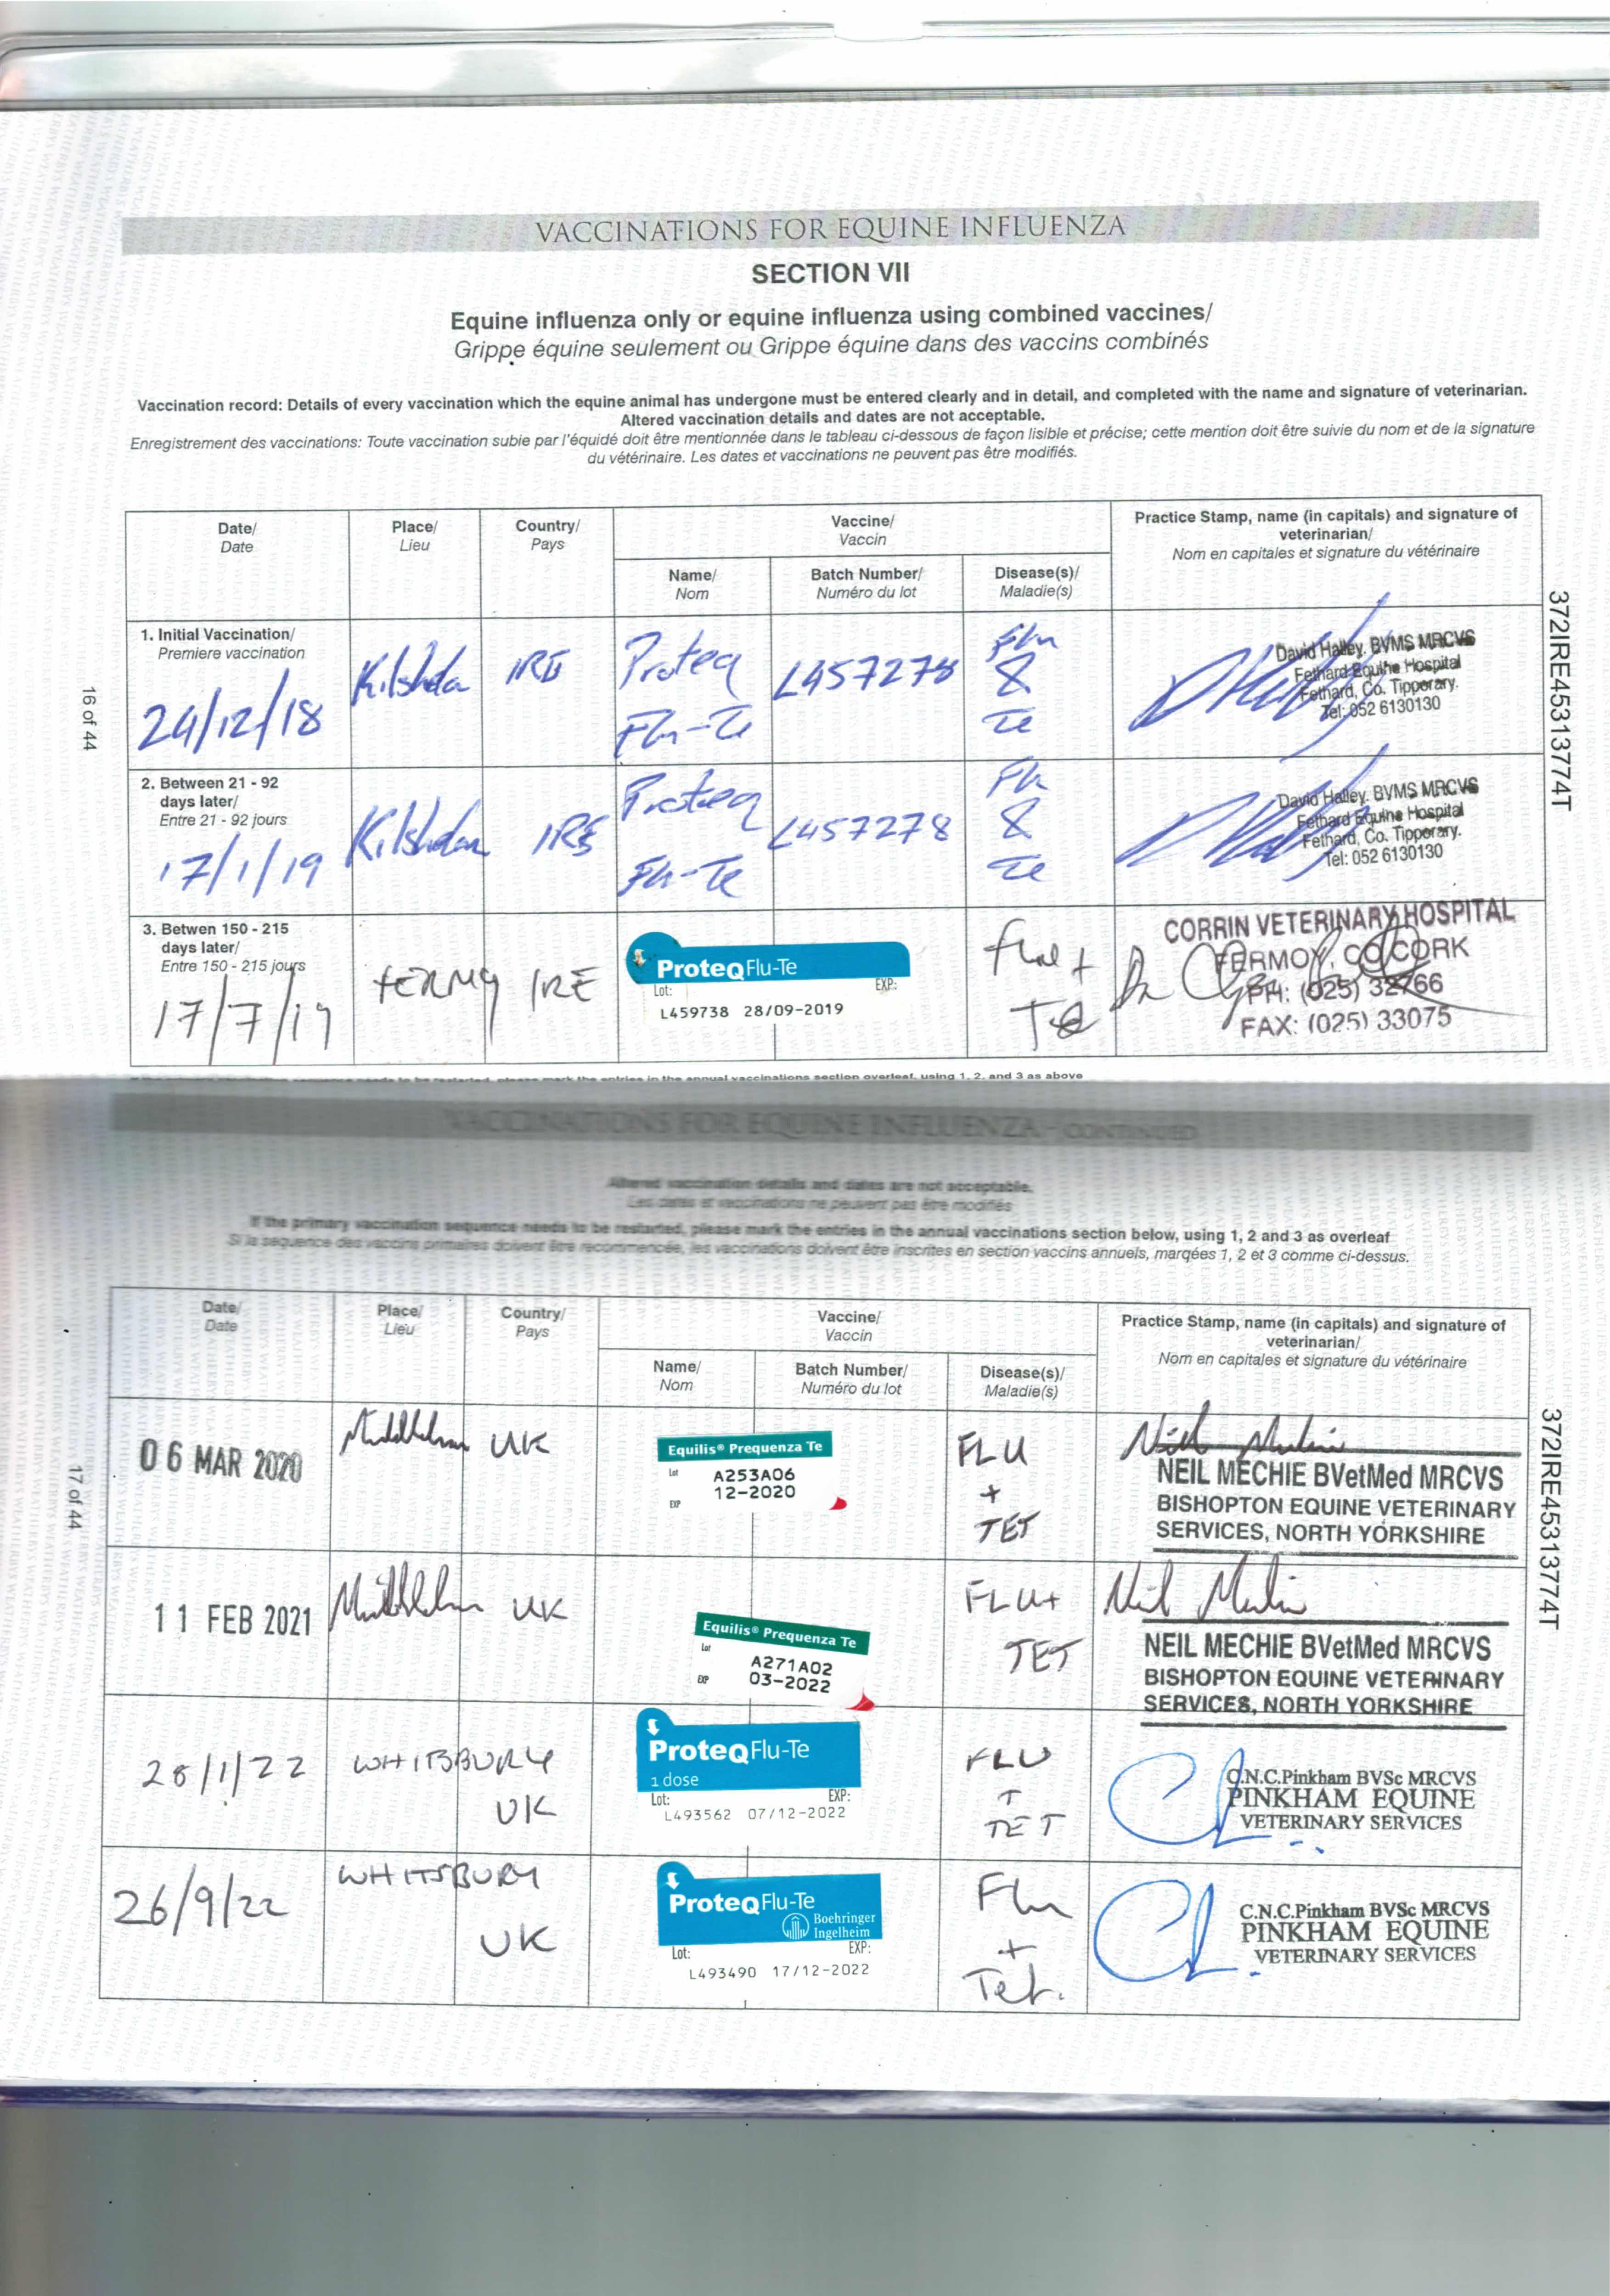 VACCINATIONS FOR EQUINE INFLUENZA
SECTION VII
Equine influenza only or equine influenza using combined vaccines/
Grippe équine seulement ou Grippe équine dans des vaccins combinés
Vaccination record: Details of every vaccination which the equine animal has undergone must be entered clearly and in detail, and completed with the name and signature of veterinarian.
Altered vaccination details and dates are not acceptable.
Enregistrement des vaccinations: Toute vaccination subie par l'équidé doit être mentionnée dans le tableau ci-dessous de façon lisible et précise; cette mention doit être suivie du nom et de la signature
du vétérinaire. Les dates et vaccinations ne peuvent pas être modifiés.
Date/
Date
Place/
Lieu
Country/
Pays
Vaccine/
Vaccin
Name/
Nom
Batch Number/
Numéro du lot
Disease(s)/
Maladie(s)
Practice Stamp, name (in capitals) and signature of
veterinarian/
Nom en capitales et signature du vétérinaire
1. Initial Vaccination/
Premiere vaccination
24/12/18
IRE
Proteq
Flu-Te
L457278
Flu
&
Te
David Halley. BVMS MRCVS
Fethard Equine Hospital
Fethard, Co. Tipperary.
Tel: 052 6130130
2. Between 21 - 92
days later/
Entre 21 - 92 jours
17/1/19
IRE
Proteq
Flu-Te
L457278
Flu
&
Te
David Halley. BVMS MRCVS
Fethard Equine Hospital
Fethard, Co. Tipperary.
Tel: 052 6130130
3. Betwen 150 - 215
days later/
Entre 150 - 215 jours
17/7/19
FERMOY
IRE
ProteqFlu-Te
Lot:
EXP:
L459738 28/09-2019
flu +
Te
CORRIN VETERINARY HOSPITAL
FERMOY, CO. CORK
PH: (025) 32766
FAX: (025) 33075
16 of 44
372IRE45313774T
please mark the entries in the annual vaccinations section overleaf, using 1, 2, and 3 as above
VACCINATIONS FOR EQUINE INFLUENZA - CONTINUED
Altered vaccination details and dates are not acceptable.
Les dates et vaccinations ne peuvent pas être modifiés
If the primary vaccination sequence needs to be restarted, please mark the entries in the annual vaccinations section below, using 1, 2 and 3 as overleaf
Si la sequence des vaccins primaires doivent être recommencée, les vaccinations doivent être inscrites en section vaccins annuels, marqées 1, 2 et 3 comme ci-dessus.
Date/
Date
Place/
Lieu
Country/
Pays
Vaccine/
Vaccin
Name/
Nom
Batch Number/
Numéro du lot
Disease(s)/
Maladie(s)
Practice Stamp, name (in capitals) and signature of
veterinarian/
Nom en capitales et signature du vétérinaire
06 MAR 2020
Middleham
UK
Equilis® Prequenza Te
Lot
A253A06
12-2020
EXP
FLU
+
TET
NEIL MECHIE BVetMed MRCVS
BISHOPTON EQUINE VETERINARY
SERVICES, NORTH YORKSHIRE
11 FEB 2021
Middleham
UK
Equilis® Prequenza Te
Lot
A271A02
EXP
03-2022
FLU+
TET
NEIL MECHIE BVetMed MRCVS
BISHOPTON EQUINE VETERINARY
SERVICES, NORTH YORKSHIRE
28/1/22
WHITSBURY
UK
ProteqFlu-Te
1 dose
Lot:
EXP:
L493562 07/12-2022
FLU
+
TET
C.N.C.Pinkham BVSc MRCVS
PINKHAM EQUINE
VETERINARY SERVICES
26/9/22
WHITSBURY
UK
ProteqFlu-Te
Boehringer
Ingelheim
Lot:
EXP:
L493490 17/12-2022
Flu
+
Tet.
C.N.C.Pinkham BVSc MRCVS
PINKHAM EQUINE
VETERINARY SERVICES
17 of 44
372IRE45313774T